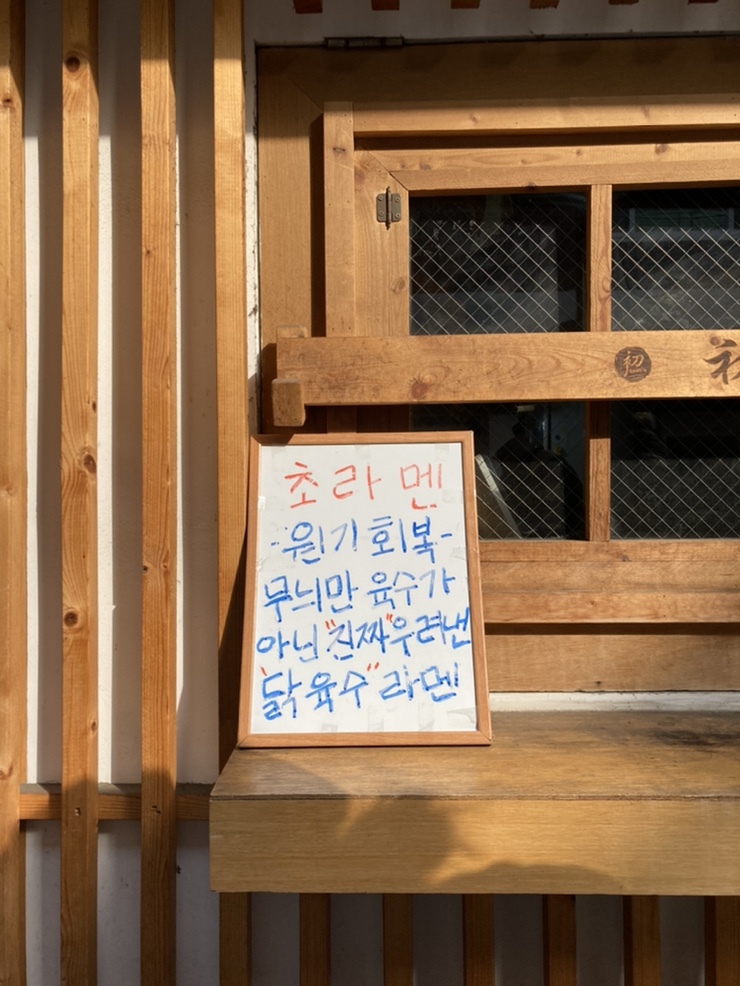 初
초라멘
-원기회복-
무늬만 육수가
아닌 "진짜" 우려낸
"닭육수" 라멘